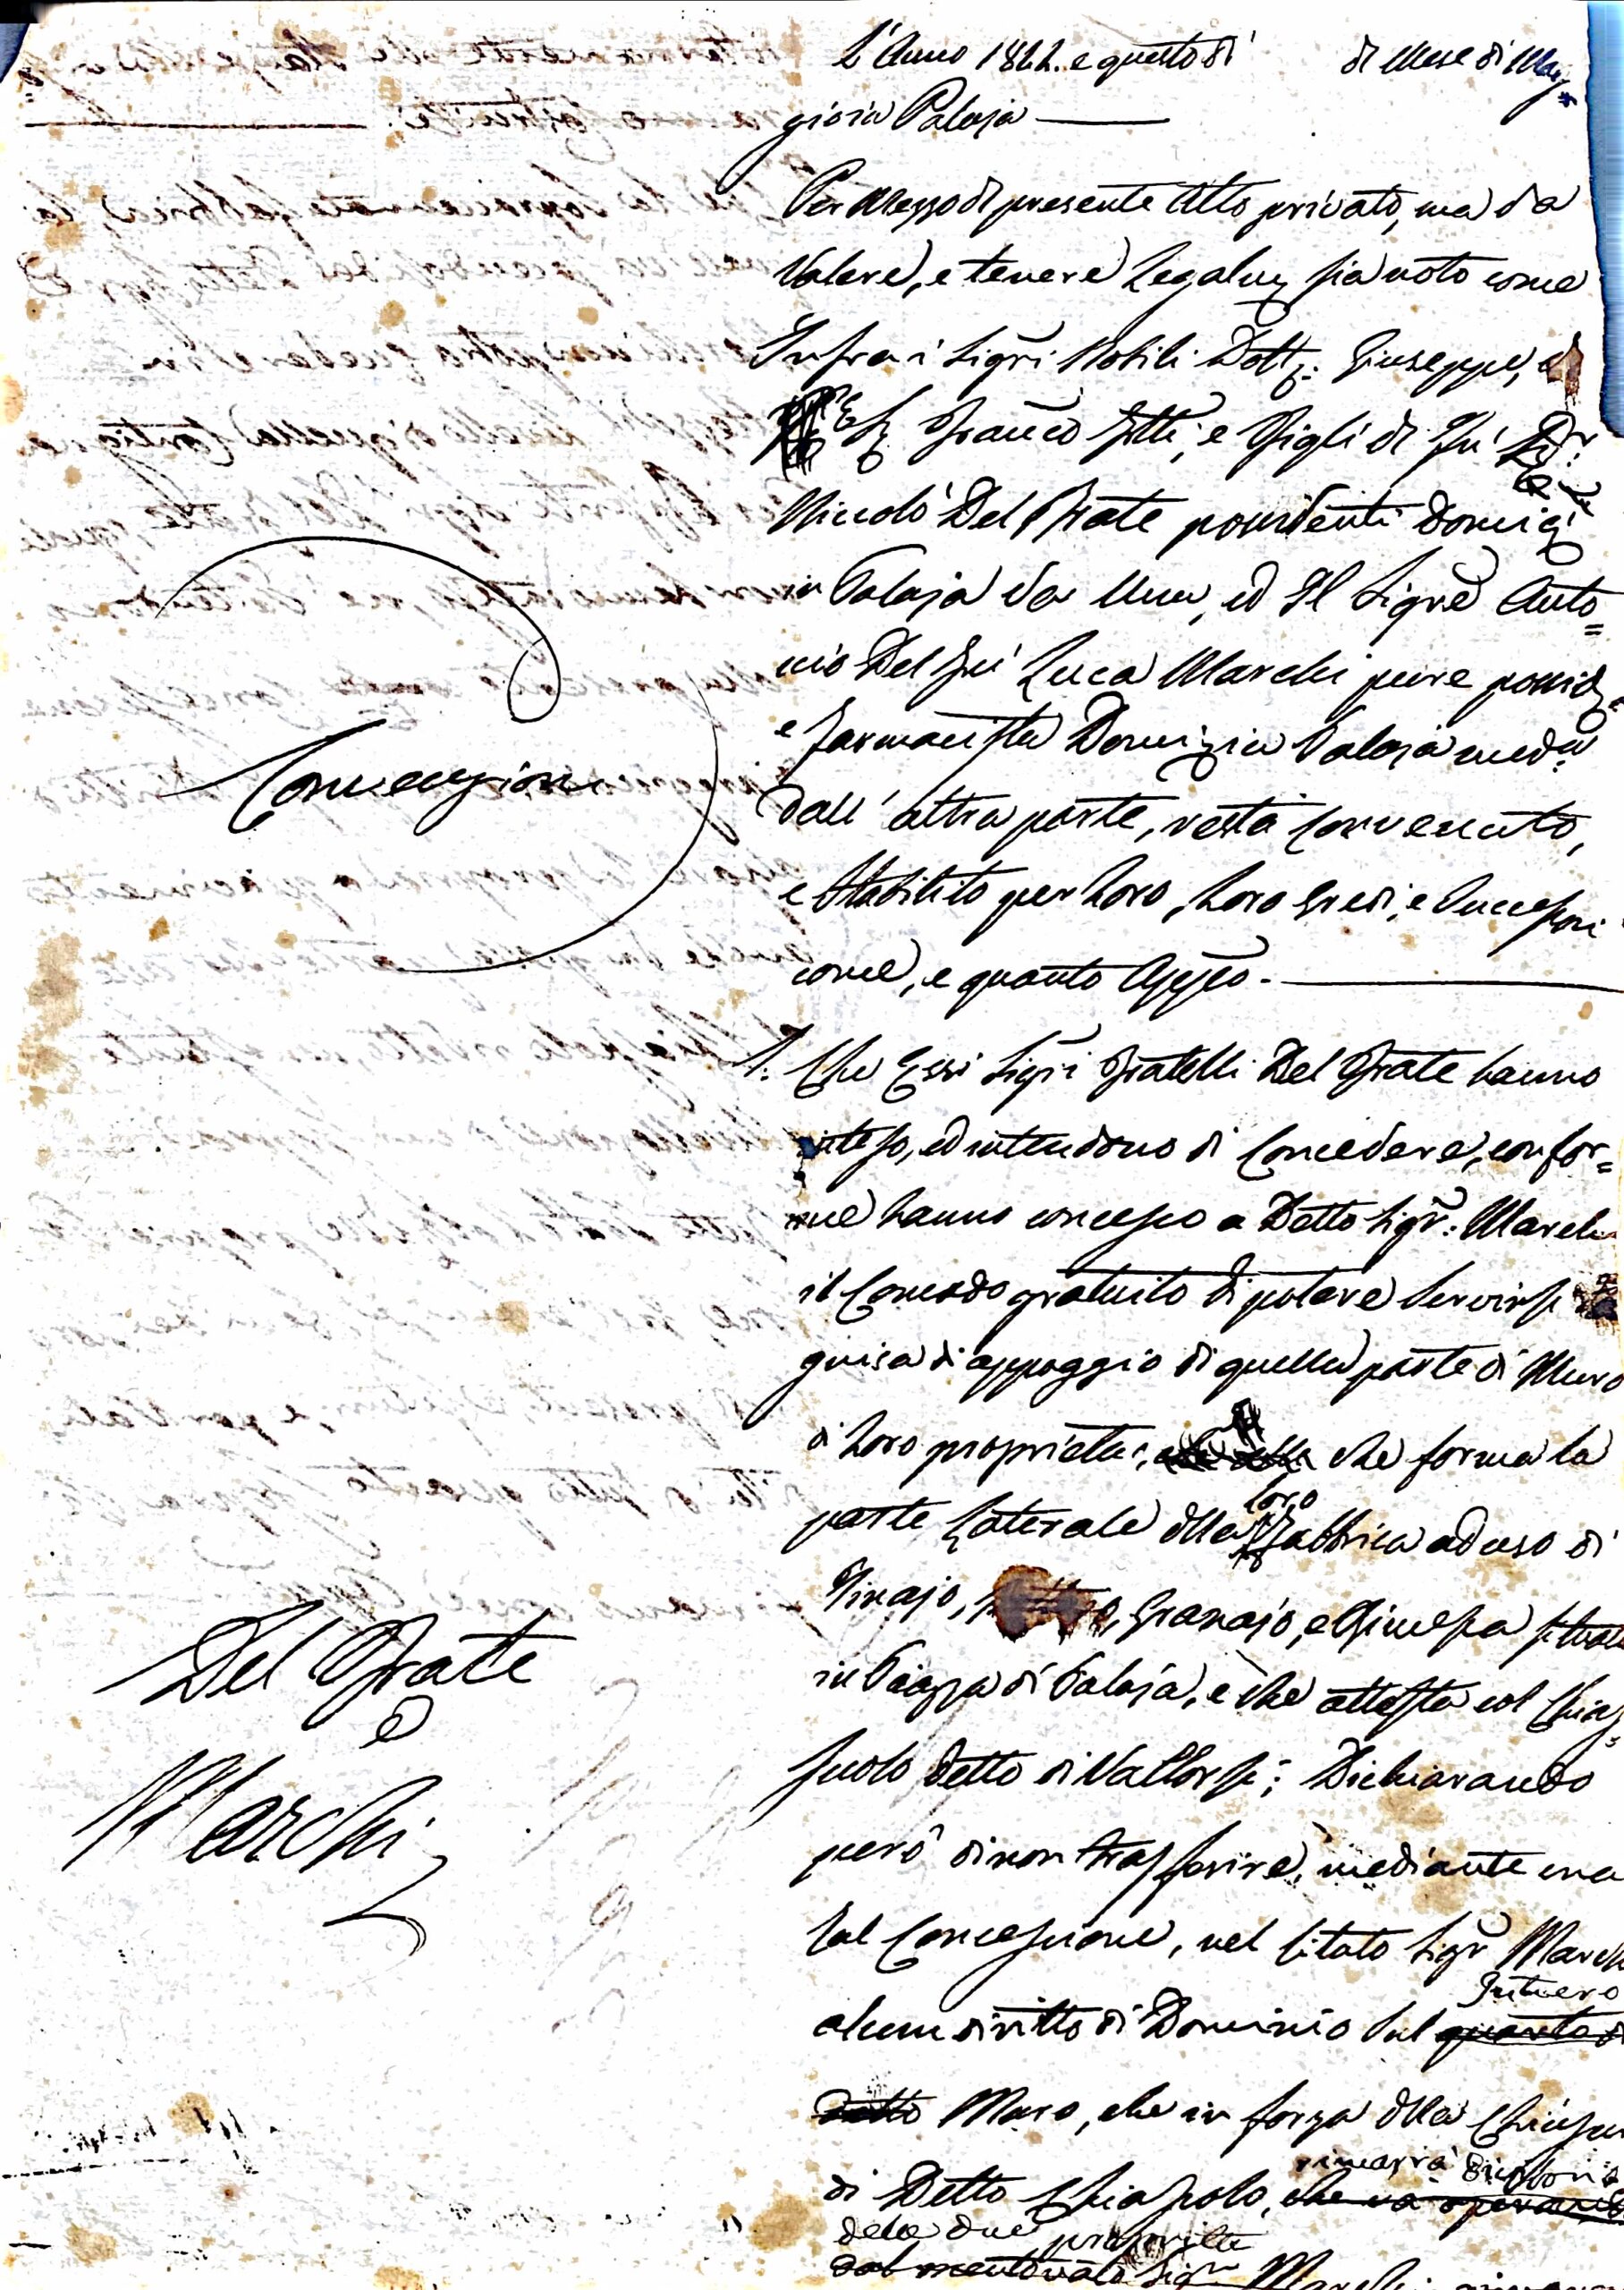 L'Anno 1822. e questo dì di Mese di Mag=
gio in Palaja
Per Mezzo di presente Atto privato, ma da
Valere, e tenere Legalm. sia noto come
Infra i Sigri Nobili Dott. Giuseppe, e
Franco Ftti, e Figli di Fu
Niccolò Del Frate possidenti Domici
in Palaja da Una, ed Il Sigre Anto=
nio Del fu Luca Marchi pure possid.
e farmacista Domi in Palaja med.a
dall' altra parte, resta Convenuto,
e Stabilito per Loro, Loro Eredi, e Successori
come, e quanto Appso.
Convenzione
1. Che Essi Sigri Fratelli Del Frate hanno
inteso, ed intendono di Concedere, confor=
me hanno concesso a Detto Sigr: Marchi
il Comodo gratuito di potere Servirsi
guisa di appoggio di quella parte di Muro
di Loro proprietà, che forma la
parte Laterale della loro Fabbrica ad uso di
Tinajo, Granajo, e Rimessa
in Piazza di Palaja, e che attesta col Chias=
suolo detto di Vallorsi; Dichiarando
Del Frate
e
Marchi
però di non trasferire, mediante una
tal Concessione, nel Citato Sigr Marchi
alcun diritto di Dominio Sul quanto di
Intiero
detto Muro, che in forza della Chiusura
rimarrà divisorio
di Detto Chiassolo, che va operando
delle due proprietà
dal mentovato Sigr Marchi